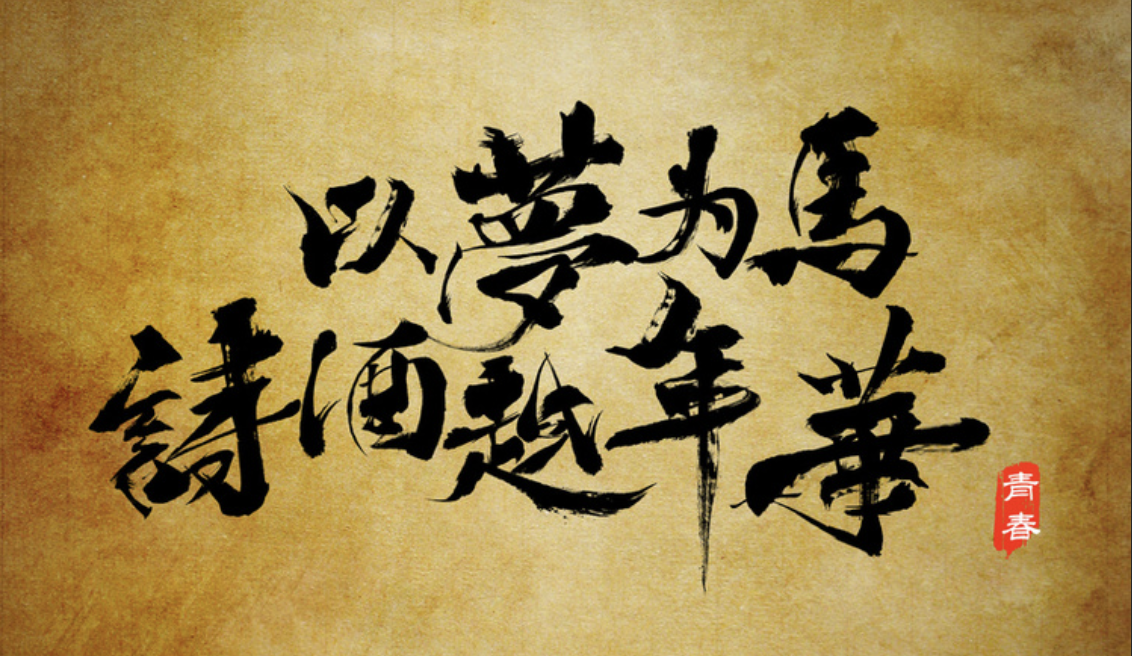 以夢为馬
詩酒越年華
青春